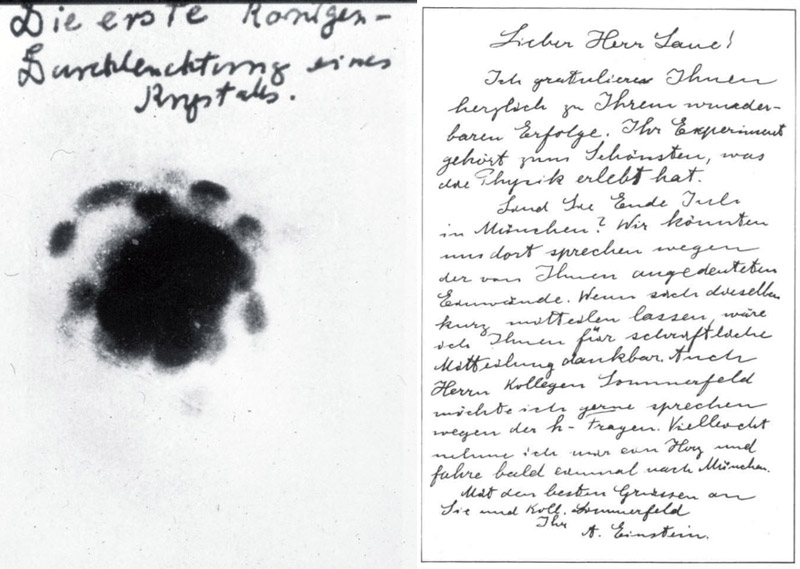 Die erste Röntgen-
Durchleuchtung eines
Krystalls.
Lieber Herr Laue!
Ich gratuliere Ihnen
herzlich zu Ihrem wunder-
baren Erfolge. Ihr Experiment
gehört zum Schönsten, was
die Physik erlebt hat.
Sind Sie Ende Juli
in München? Wir könnten
uns dort sprechen wegen
der von Ihnen angedeuteten
Einwände. Wenn sich dieselben
kurz mitteilen lassen, wäre
ich Ihnen für schriftliche
Mitteilung dankbar. Auch
Herrn Kollegen Sommerfeld
möchte ich gerne sprechen
wegen der h-Fragen. Vielleicht
nehme ich mir ein Herz und
fahre bald einmal nach München.
Mit den besten Grüssen an
Sie und Koll. Sommerfeld
Ihr
A. Einstein.